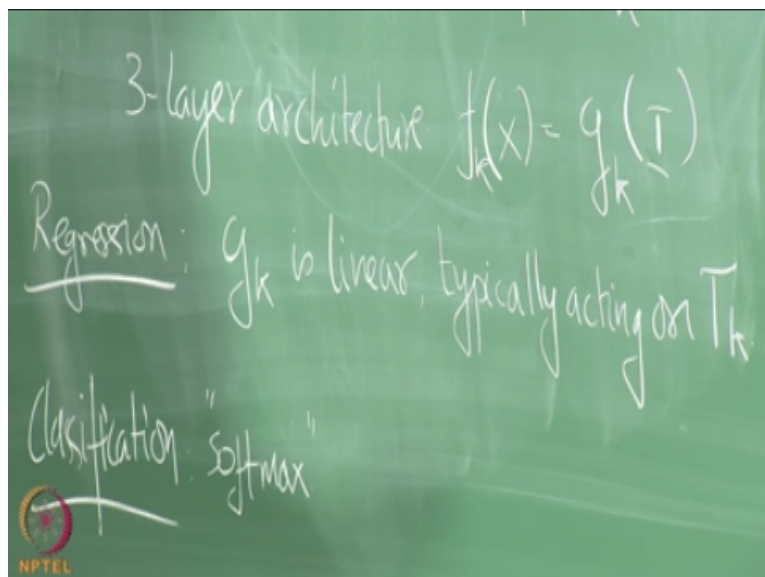 3-layer architecture f_k(X) = g_k(T)
Regression: g_k is linear, typically acting on T_k
Classification: "Softmax"
NPTEL